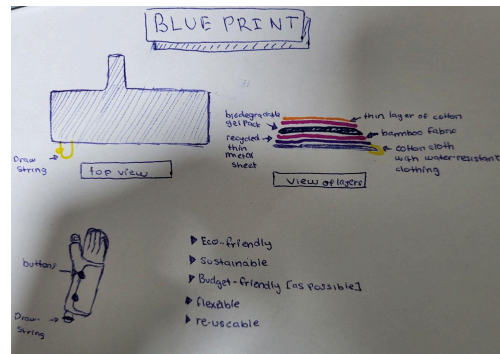 BLUE PRINT
Draw
String
top view
biodegradable
gel pack
recycled
thin
metal
sheet
thin layer of cotton
bamboo fabric
cotton cloth
with water-resistant
clothing
view of layers
buttons
Draw-
String
Eco-friendly
Sustainable
Budget-friendly [as possible]
flexible
re-uscable